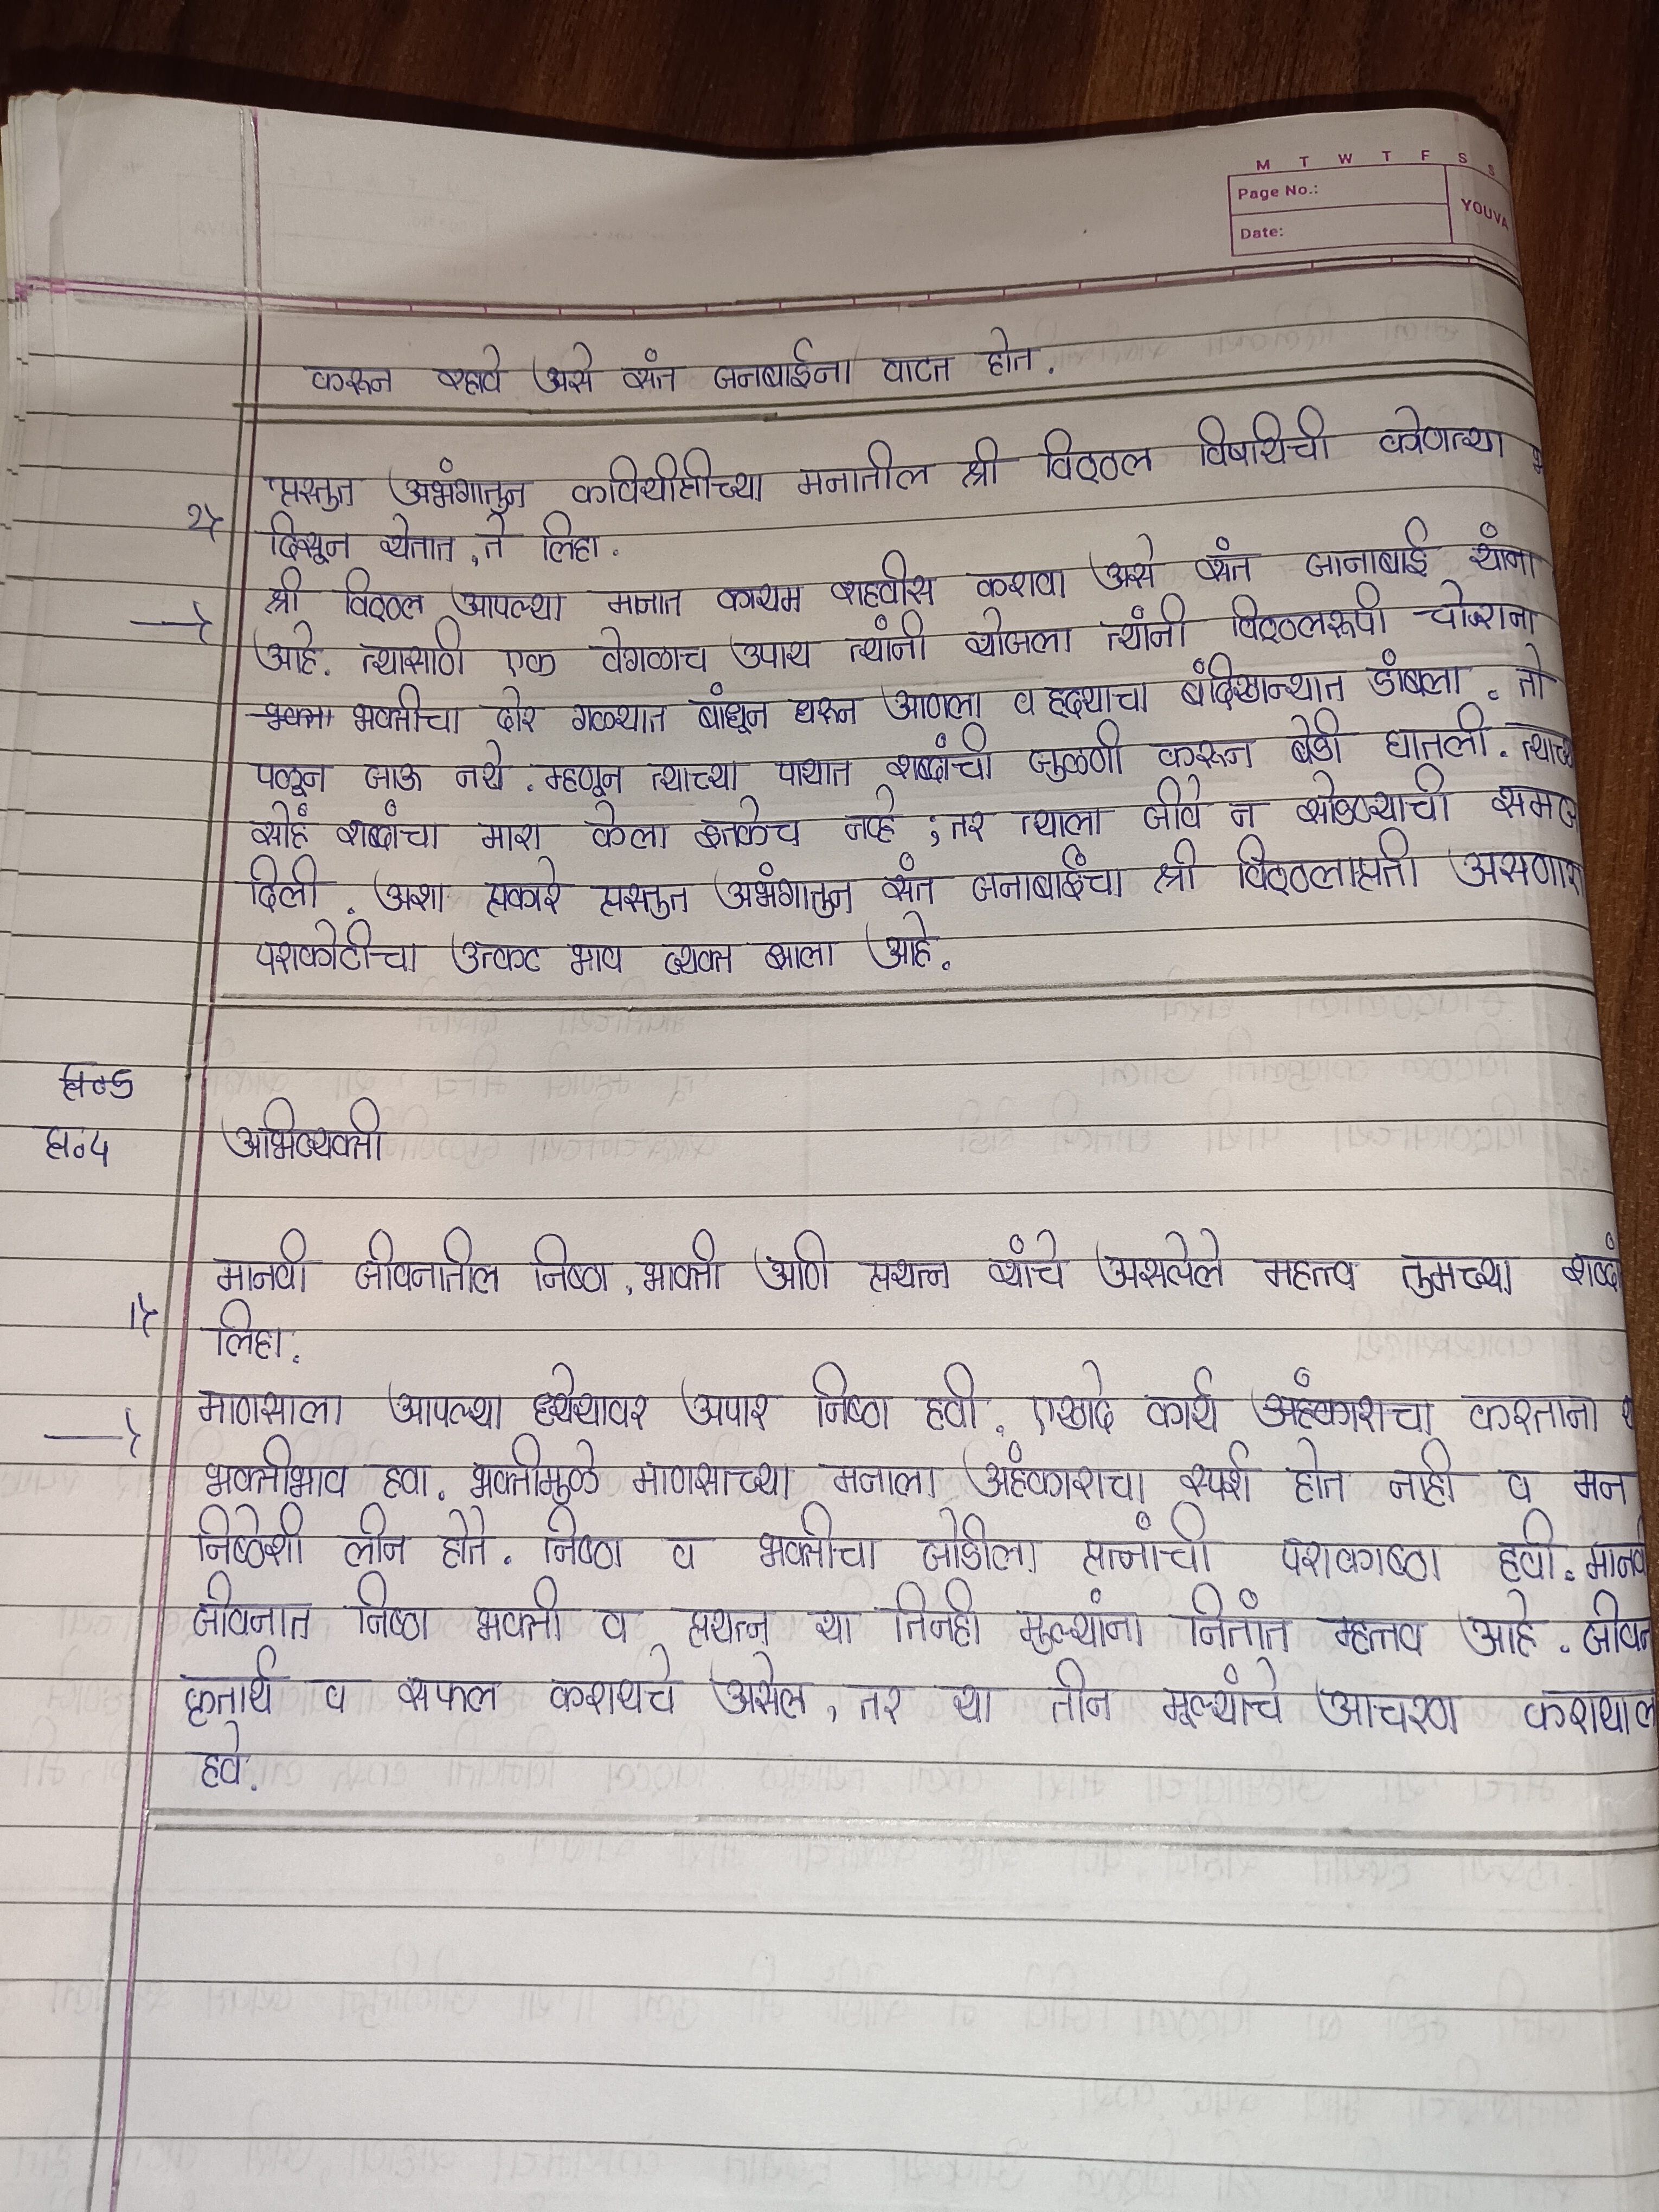 M T W T F S S
Page No.:
YOUVA
Date:
करून रहावे असे संत जनबाईना वाटत होत.
२) प्रस्तुत अभंगातुन कवियीत्रीच्या मनातील श्री विठ्ठल विषयिची कोणत्या
दिसून येतात, ते लिहा.
→ श्री विठ्ठल आपल्या मनात कायम राहवीस करावा असे संत जानाबाई यांना
आहे. त्यासाठी एक वेगळाच उपाय त्यांनी योजला त्यांनी विठ्ठलरूपी चोराना
भक्तीचा दोर गळ्यात बांधून धरून आणला व हृदयाचा बंदिखान्यात डांबला. तो
पळून जाऊ नये. म्हणून त्याच्या पायात शब्दांची जुळणी करून बेडी घातली.
सोहं शब्दांचा मारा केला इतकेच नव्हे, तर त्याला जीवे न सोडण्याची
दिली. अशा प्रकारे प्रस्तुत अभंगातुन संत जनाबाईंचा श्री विठ्ठलाप्रती
पराकोटीचा उत्कट भाव व्यक्त झाला आहे.
प्र.5
प्र.4 अभिव्यक्ती
1) मानवी जीवनातील निष्ठा, भाक्ती आणि प्रयत्न यांचे असलेले महत्त्व तुमच्या
लिहा.
→ माणसाला आपल्या ध्येयावर अपार निष्ठा हवी. एखादे कार्य अहंकाराचा करताना
भक्तीभाव हवा. भक्तीमुळे माणसाच्या मनाला अहंकाराचा स्पर्श होत नाही व मन
निष्ठेशी लीन होते. निष्ठा व भक्तीचा जोडीला प्रत्नांची पराकाष्ठा हवी.
जीवनात निष्ठा भक्ती व प्रयत्न या तिनही मुल्यांना नितांत म्हत्तव आहे.
कृतार्थ व सफल करायचे असेल, तर या तीन मूल्यांचे आचरण
हवे.